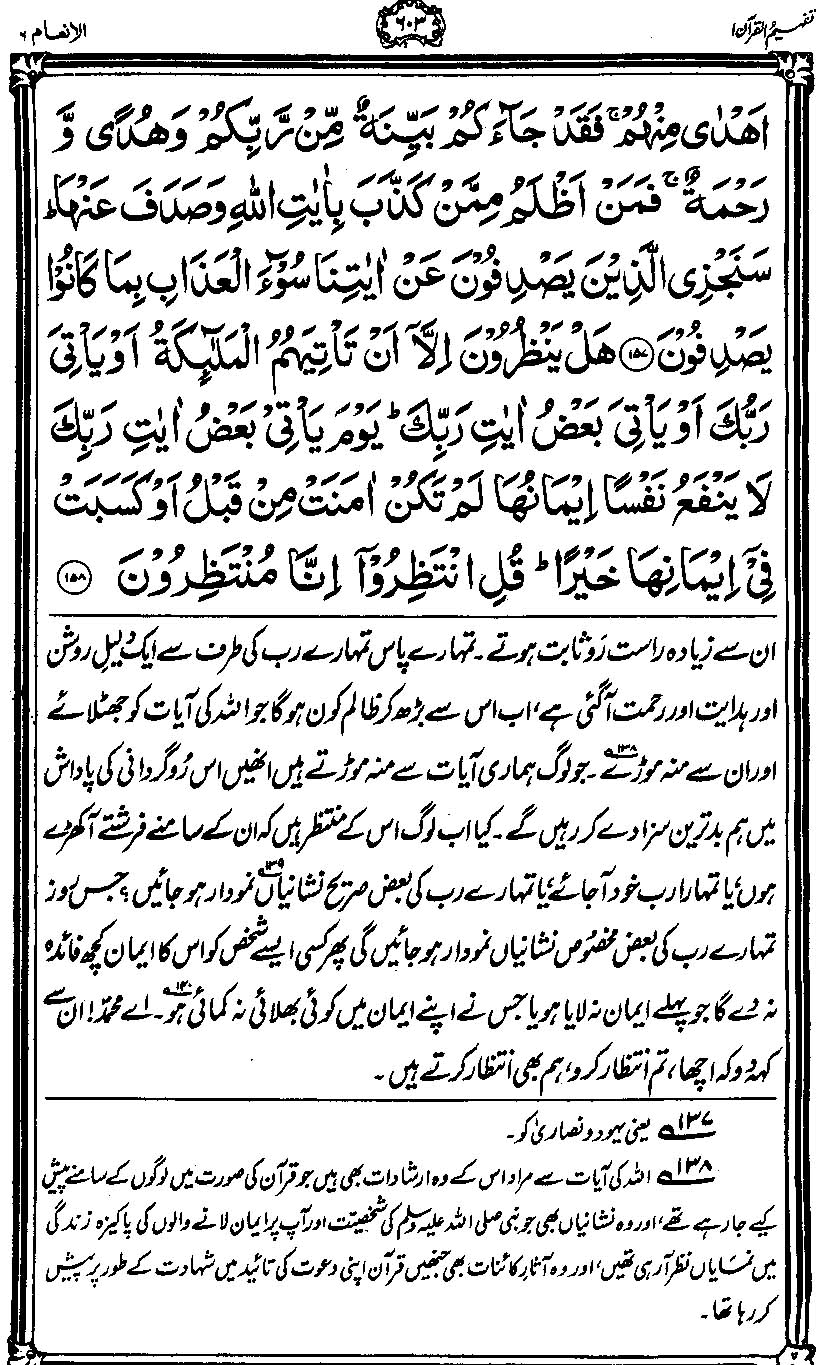 تفہیم القرآن ۱
۶۰۳
الانعام ۶
اَهْدٰى مِنْهُمْ ۚ فَقَدْ جَآءَكُمْ بَيِّنَةٌ مِّنْ رَّبِّكُمْ وَهُدًى وَّ
رَحْمَةٌ ۚ فَمَنْ اَظْلَمُ مِمَّنْ كَذَّبَ بِاٰيٰتِ اللّٰهِ وَصَدَفَ عَنْهَا ؕ
سَنَجْزِى الَّذِيْنَ يَصْدِفُوْنَ عَنْ اٰيٰتِنَا سُوْٓءَ الْعَذَابِ بِمَا كَانُوْا
يَصْدِفُوْنَ ۱۵۷ هَلْ يَنْظُرُوْنَ اِلَّاۤ اَنْ تَاْتِيَهُمُ الْمَلٰٓئِكَةُ اَوْ يَاْتِىَ
رَبُّكَ اَوْ يَاْتِىَ بَعْضُ اٰيٰتِ رَبِّكَ ؕ يَوْمَ يَاْتِىْ بَعْضُ اٰيٰتِ رَبِّكَ
لَا يَنْفَعُ نَفْسًا اِيْمَانُهَا لَمْ تَكُنْ اٰمَنَتْ مِنْ قَبْلُ اَوْ كَسَبَتْ
فِىْۤ اِيْمَانِهَا خَيْرًا ؕ قُلِ انْتَظِرُوْۤا اِنَّا مُنْتَظِرُوْنَ ۱۵۸
ان سے زیادہ راست رَو ثابت ہوتے۔ تمہارے پاس تمہارے رب کی طرف سے ایک دلیلِ روشن
اور ہدایت اور رحمت آگئی ہے، اب اس سے بڑھ کر ظالم کون ہوگا جو اللہ کی آیات کو جھٹلائے
اور ان سے منہ موڑے۱۳۸۔ جو لوگ ہماری آیات سے منہ موڑتے ہیں انھیں اس رُوگردانی کی پاداش
میں ہم بدترین سزا دے کر رہیں گے۔ کیا اب لوگ اس کے منتظر ہیں کہ ان کے سامنے فرشتے آکھڑے
ہوں، یا تمہارا رب خود آجائے، یا تمہارے رب کی بعض صریح نشانیاں۱۳۹ نمودار ہو جائیں؟ جس روز
تمہارے رب کی بعض مخصوص نشانیاں نمودار ہو جائیں گی پھر کسی ایسے شخص کو اس کا ایمان کچھ فائدہ
نہ دے گا جو پہلے ایمان نہ لایا ہو یا جس نے اپنے ایمان میں کوئی بھلائی نہ کمائی ہو۱۴۰۔ اے محمدؐ! ان سے
کہہ دو کہ اچھا، تم انتظار کرو، ہم بھی انتظار کرتے ہیں۔
۱۳۷ یعنی یہود و نصاریٰ کو۔
۱۳۸ اللہ کی آیات سے مراد اس کے وہ ارشادات بھی ہیں جو قرآن کی صورت میں لوگوں کے سامنے پیش
کیے جا رہے تھے، اور وہ نشانیاں بھی جو نبی صلی اللہ علیہ وسلم کی شخصیت اور آپ پر ایمان لانے والوں کی پاکیزہ زندگی
میں نمایاں نظر آ رہی تھیں، اور وہ آثارِ کائنات بھی جنھیں قرآن اپنی دعوت کی تائید میں شہادت کے طور پر پیش
کر رہا تھا۔